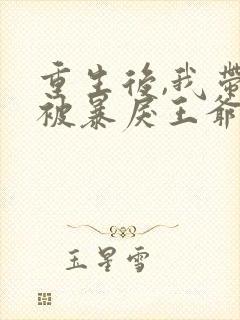 重生後,我帶
被暴戾王爺
玉星雪